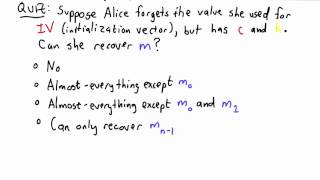 QUIZ: Suppose Alice forgets the value she used for
IV (initialization vector), but has c and k.
Can she recover m?
No
Almost-everything except m0
Almost-everything except m0 and m1
Can only recover mn-1